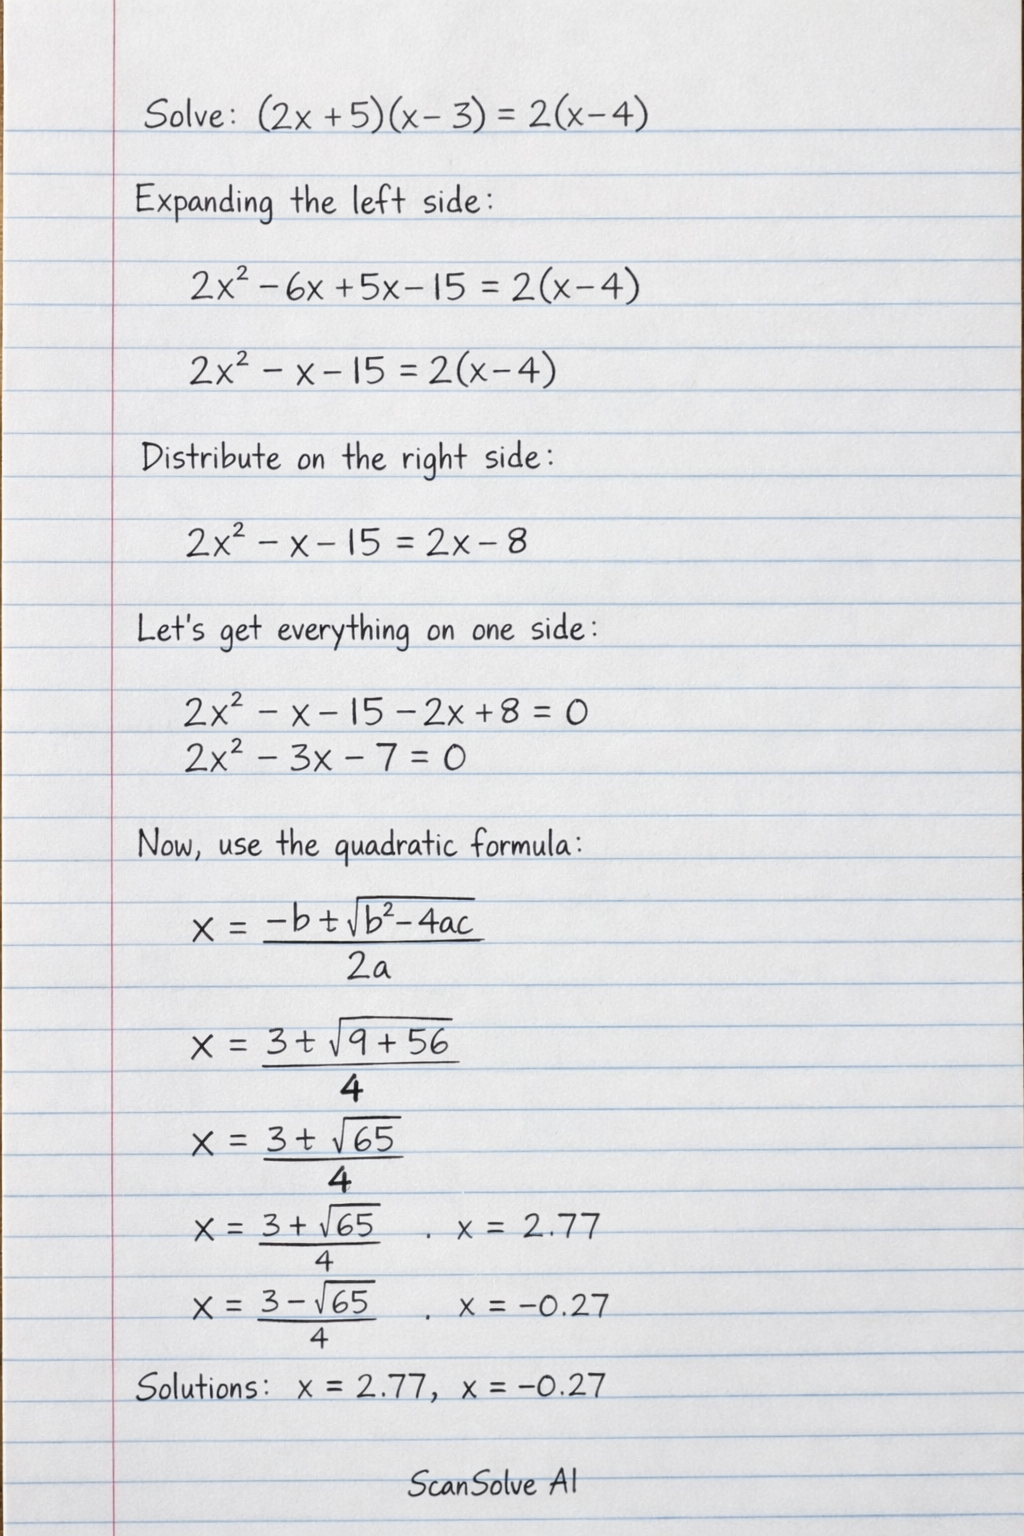 Solve: (2x + 5)(x - 3) = 2(x - 4)
Expanding the left side:
2x² - 6x + 5x - 15 = 2(x - 4)
2x² - x - 15 = 2(x - 4)
Distribute on the right side:
2x² - x - 15 = 2x - 8
Let's get everything on one side:
2x² - x - 15 - 2x + 8 = 0
2x² - 3x - 7 = 0
Now, use the quadratic formula:
x = -b ± √b² - 4ac
2a
x = 3 ± √9 + 56
4
x = 3 ± √65
4
x = 3 + √65 . x = 2.77
4
x = 3 - √65 . x = -0.27
4
Solutions: x = 2.77, x = -0.27
ScanSolve AI